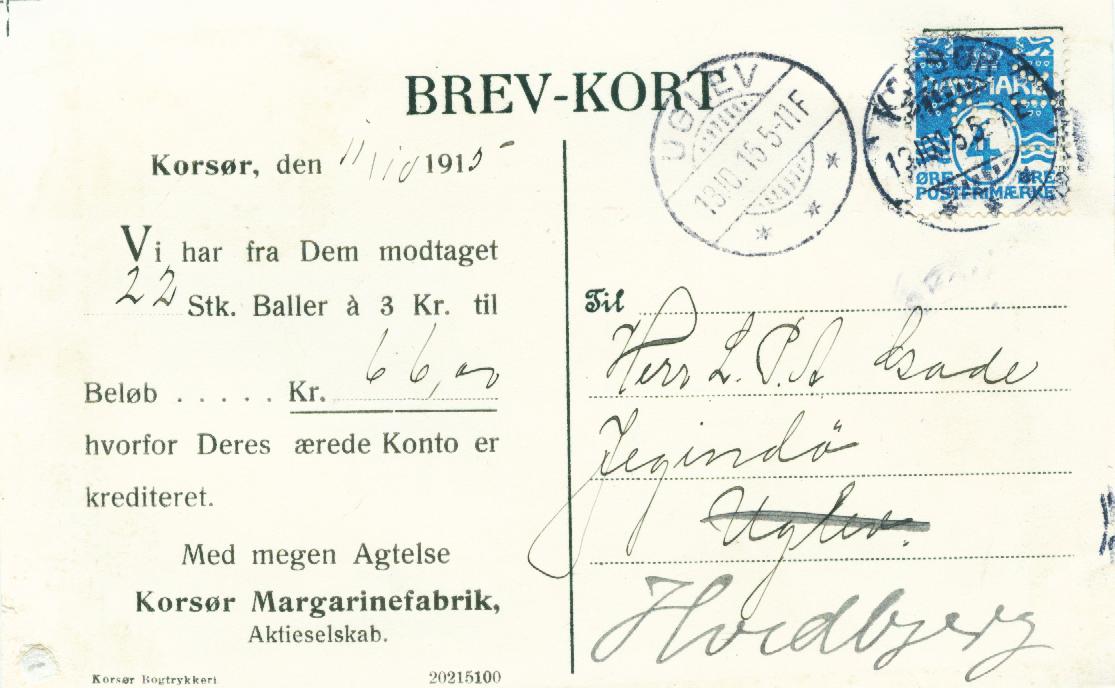 BREV-KORT
Korsør, den 11/10 1915
Vi har fra Dem modtaget
22 Stk. Baller à 3 Kr. til
Beløb ..... Kr. 66,00
hvorfor Deres ærede Konto er
krediteret.
Med megen Agtelse
Korsør Margarinefabrik,
Aktieselskab.
Korsør Bogtrykkeri
20215100
UGLEV
13.10.15 5-11F
KORSØR
DANMARK
4
ØRE ØRE
POSTFRIMÆRKE
Til
Herr L. P. A
Jegindö
Uglev.
Hvidbjerg